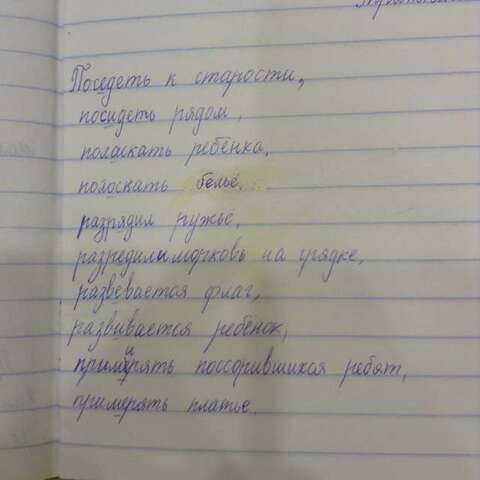 Поседеть к старости,
посидеть рядом,
поласкать ребёнка,
полоскать бельё,
разрядил ружьё,
разредили морковь на грядке,
развевается флаг,
развивается ребёнок,
примирять поссорившихся ребят,
примерять платье.